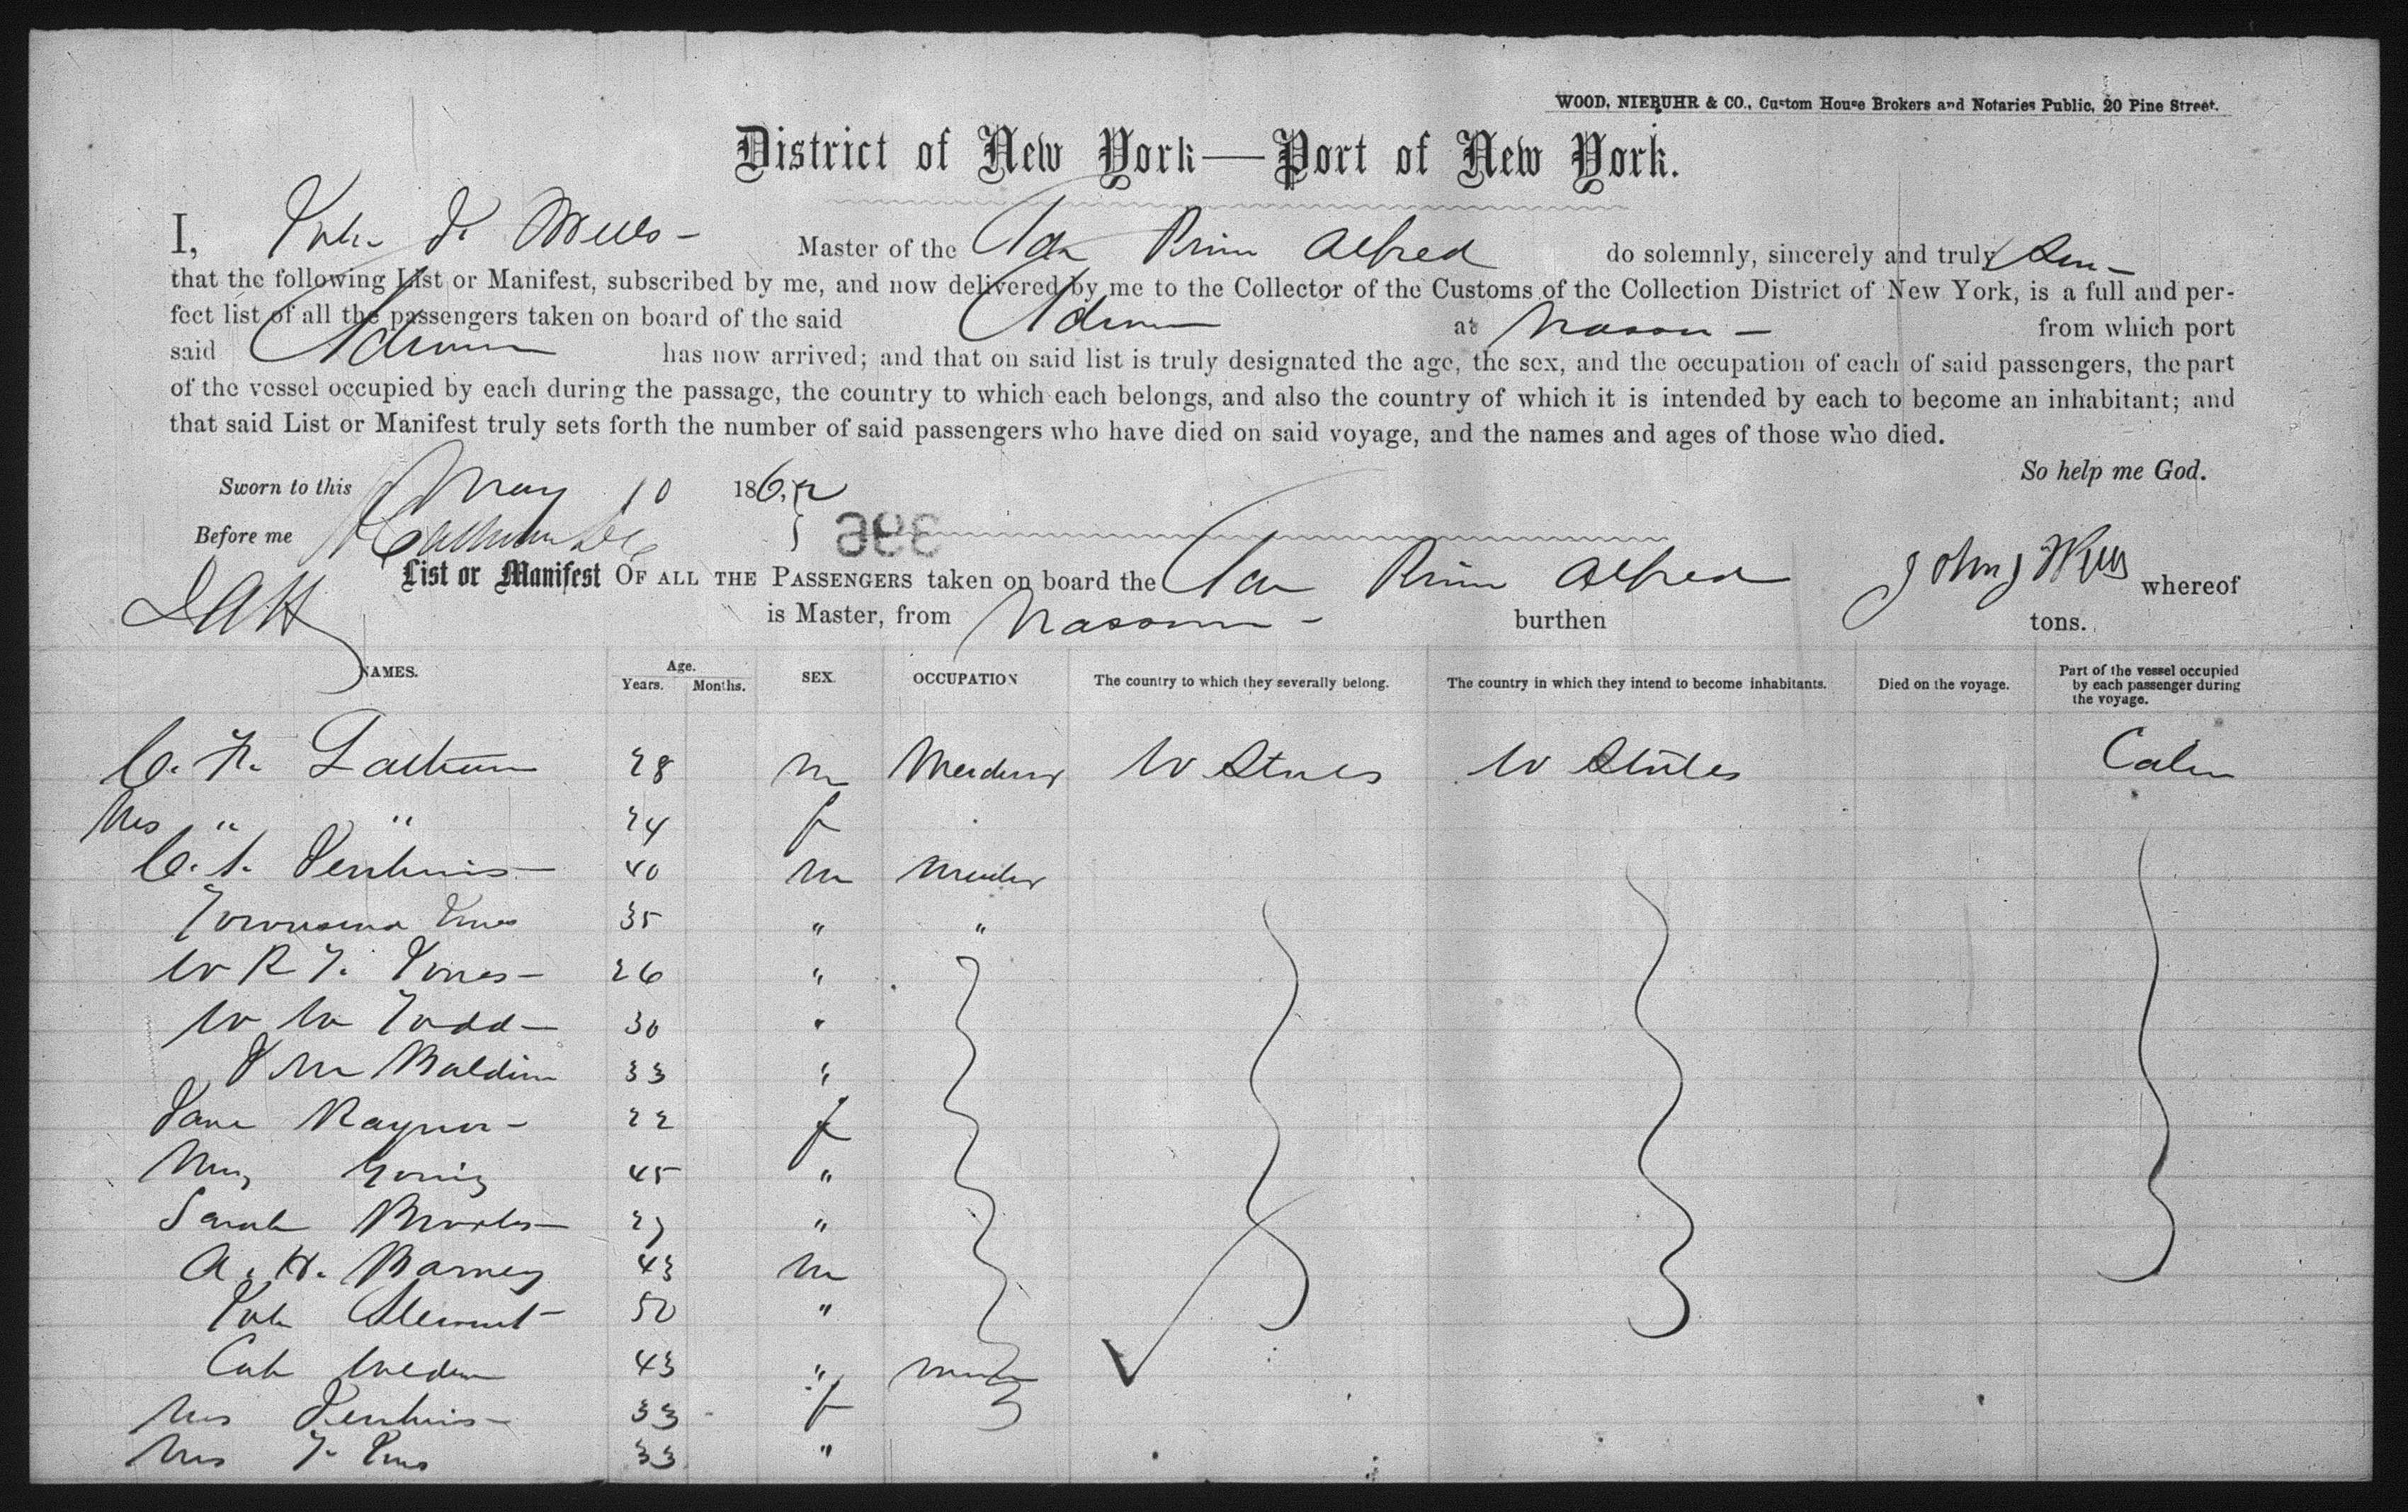 WOOD, NIEBUHR & CO., Custom House Brokers and Notaries Public, 20 Pine Street.
District of New York—Port of New York.
I, Master of the Alfred do solemnly, sincerely and truly
that the following List or Manifest, subscribed by me, and now delivered by me to the Collector of the Customs of the Collection District of New York, is a full and per-
fect list of all the passengers taken on board of the said at Nassau – from which port
said has now arrived; and that on said list is truly designated the age, the sex, and the occupation of each of said passengers, the part
of the vessel occupied by each during the passage, the country to which each belongs, and also the country of which it is intended by each to become an inhabitant; and
that said List or Manifest truly sets forth the number of said passengers who have died on said voyage, and the names and ages of those who died.
So help me God.
Sworn to this May 10 186
Before me
393
List or Manifest OF ALL THE PASSENGERS taken on board the Alfred whereof
is Master, from Nassau – burthen tons.
NAMES. Age. Years. Months. SEX. OCCUPATION The country to which they severally belong. The country in which they intend to become inhabitants. Died on the voyage. Part of the vessel occupied by each passenger during the voyage.
C. 28 m U States U States Cabin
Mrs " " 24 f
C. Jenkins 40 m
Townsend 35 " "
W R T. Jones 26 "
W W Todd 30 "
J M Baldwin 33 "
Jane Raynor 22 f
45 "
Sarah 27 "
A. H. Barney 43 m
Stewart 50 "
43 "
Mrs Jenkins 33 f
Mrs T. 33 "